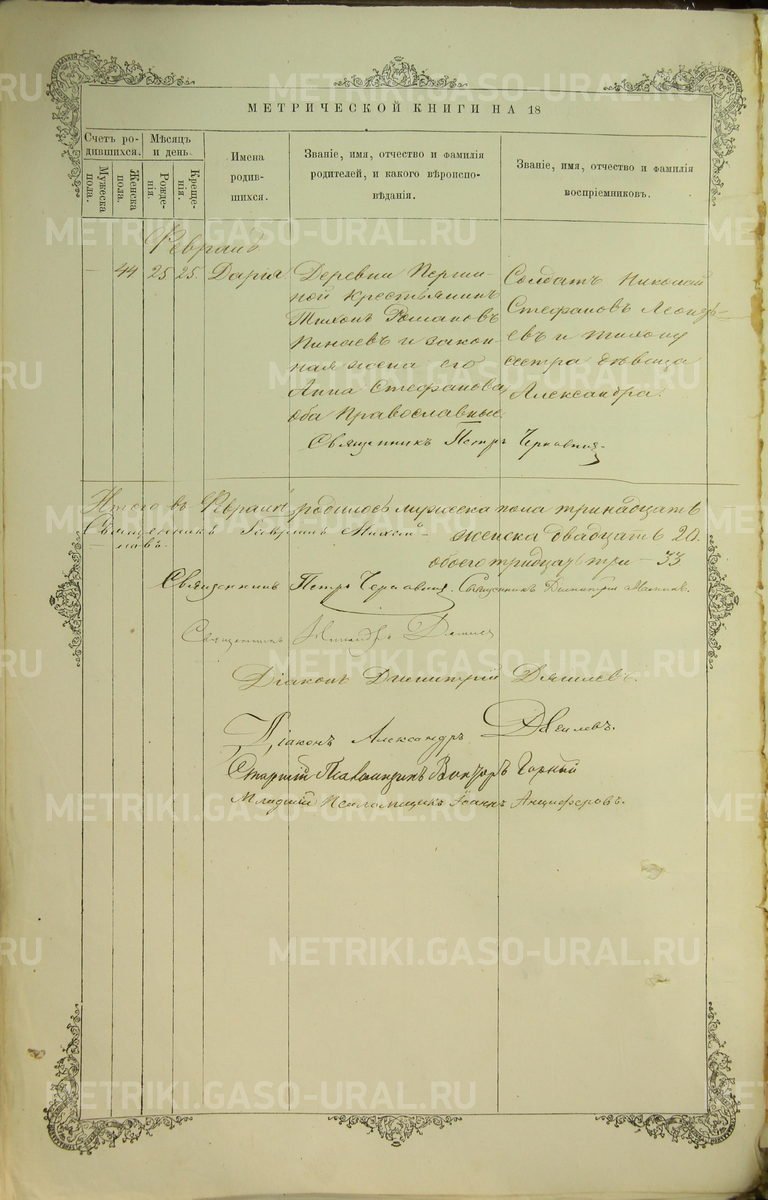 МЕТРИЧЕСКОЙ КНИГИ НА 18
Счетъ ро-
дившихся.
Мѣсяцъ
и день.
Мужеска
пола.
Женска
пола.
Рожде-
нія.
Креще-
нія.
Имена
родив-
шихся.
Званіе, имя, отчество и фамилія
родителей, и какого вѣроиспо-
вѣданія.
Званіе, имя, отчество и фамилія
воспріемниковъ.
Февраль
44 25 25 Дарья
Деревни Першин-
ной крестьянинъ
Тихонъ Романовъ
Пинаевъ и закон-
ная жена его
Анна Стефанова
оба Православные
Солдатъ Николай
Стефановъ Леонть-
евъ и
сестра дѣвица
Александра.
Священникъ Петръ
Итого въ Февралѣ родилось мужеска пола тринадцать
женска двадцать 20.
обоего тридцать три – 33
Священникъ
Священникъ Петръ Священникъ Димитрій
Священникъ
Діаконъ Димитрій
Діаконъ Александръ
Старшій Псаломщикъ Викторъ
Младшій Псаломщикъ Іоаннъ Анциферовъ.
METRIKI.GASO-URAL.RU